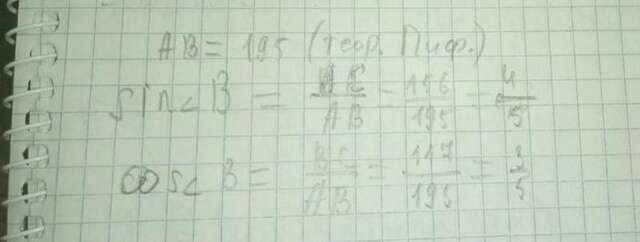 AB = 195 (теор. Пиф.)
sin∠B = AC/AB = 156/195 = 4/5
cos∠B = BC/AB = 117/195 = 3/5